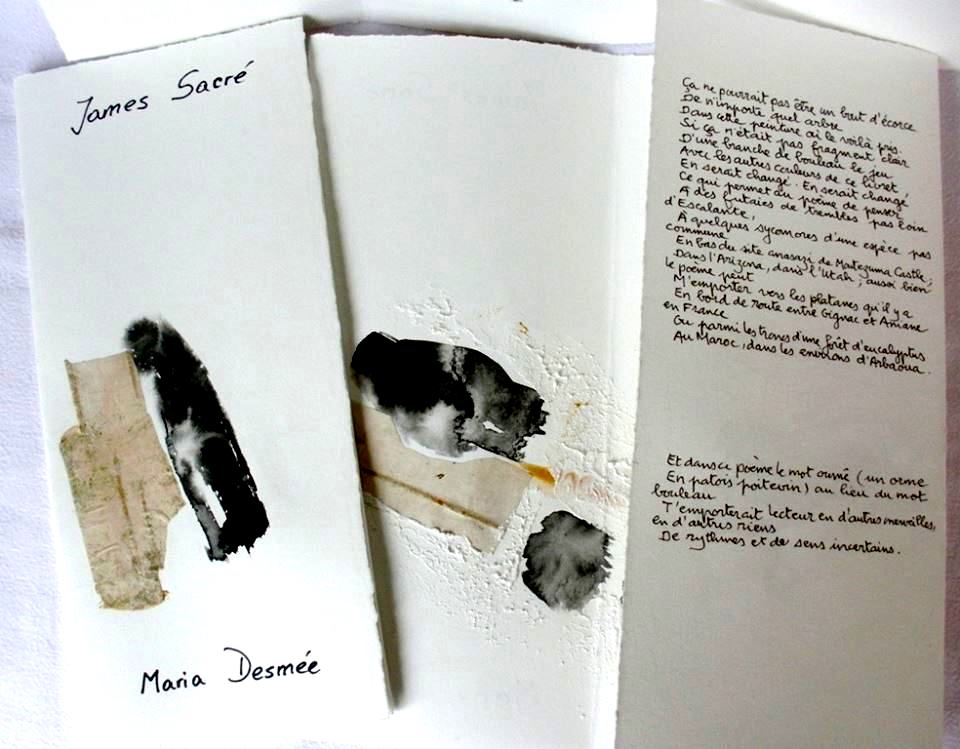 James Sacré
Maria Desmée
Ça ne pourrait pas être un brut d'écorce
De n'importe quel arbre
Dans cette peinture où le voilà pris.
Si ça n'était pas fragment clair
D'une branche de bouleau le jeu
Avec les autres couleurs de ce livret
En serait changé. En serait changé
Ce qui permet au poème de penser
A des futaies de trembles pas loin
d'Escalante,
A quelques sycomores d'une espèce pas
commune
En bas du site anasazi de Matezuma Castle ;
Dans l'Arizona, dans l'Utah ; aussi bien
le poème peut
M'emporter vers les platanes qu'il y a
En bord de route entre Gignac et Aniane
en France
Ou parmi les troncs d'une forêt d'eucalyptus
Au Maroc, dans les environs d'Arbaoua.
Et dans ce poème le mot oumâ (un orme
En patois poitevin) au lieu du mot
bouleau
T'emporterait lecteur en d'autres merveilles,
en d'autres riens
De rythmes et de sens incertains.